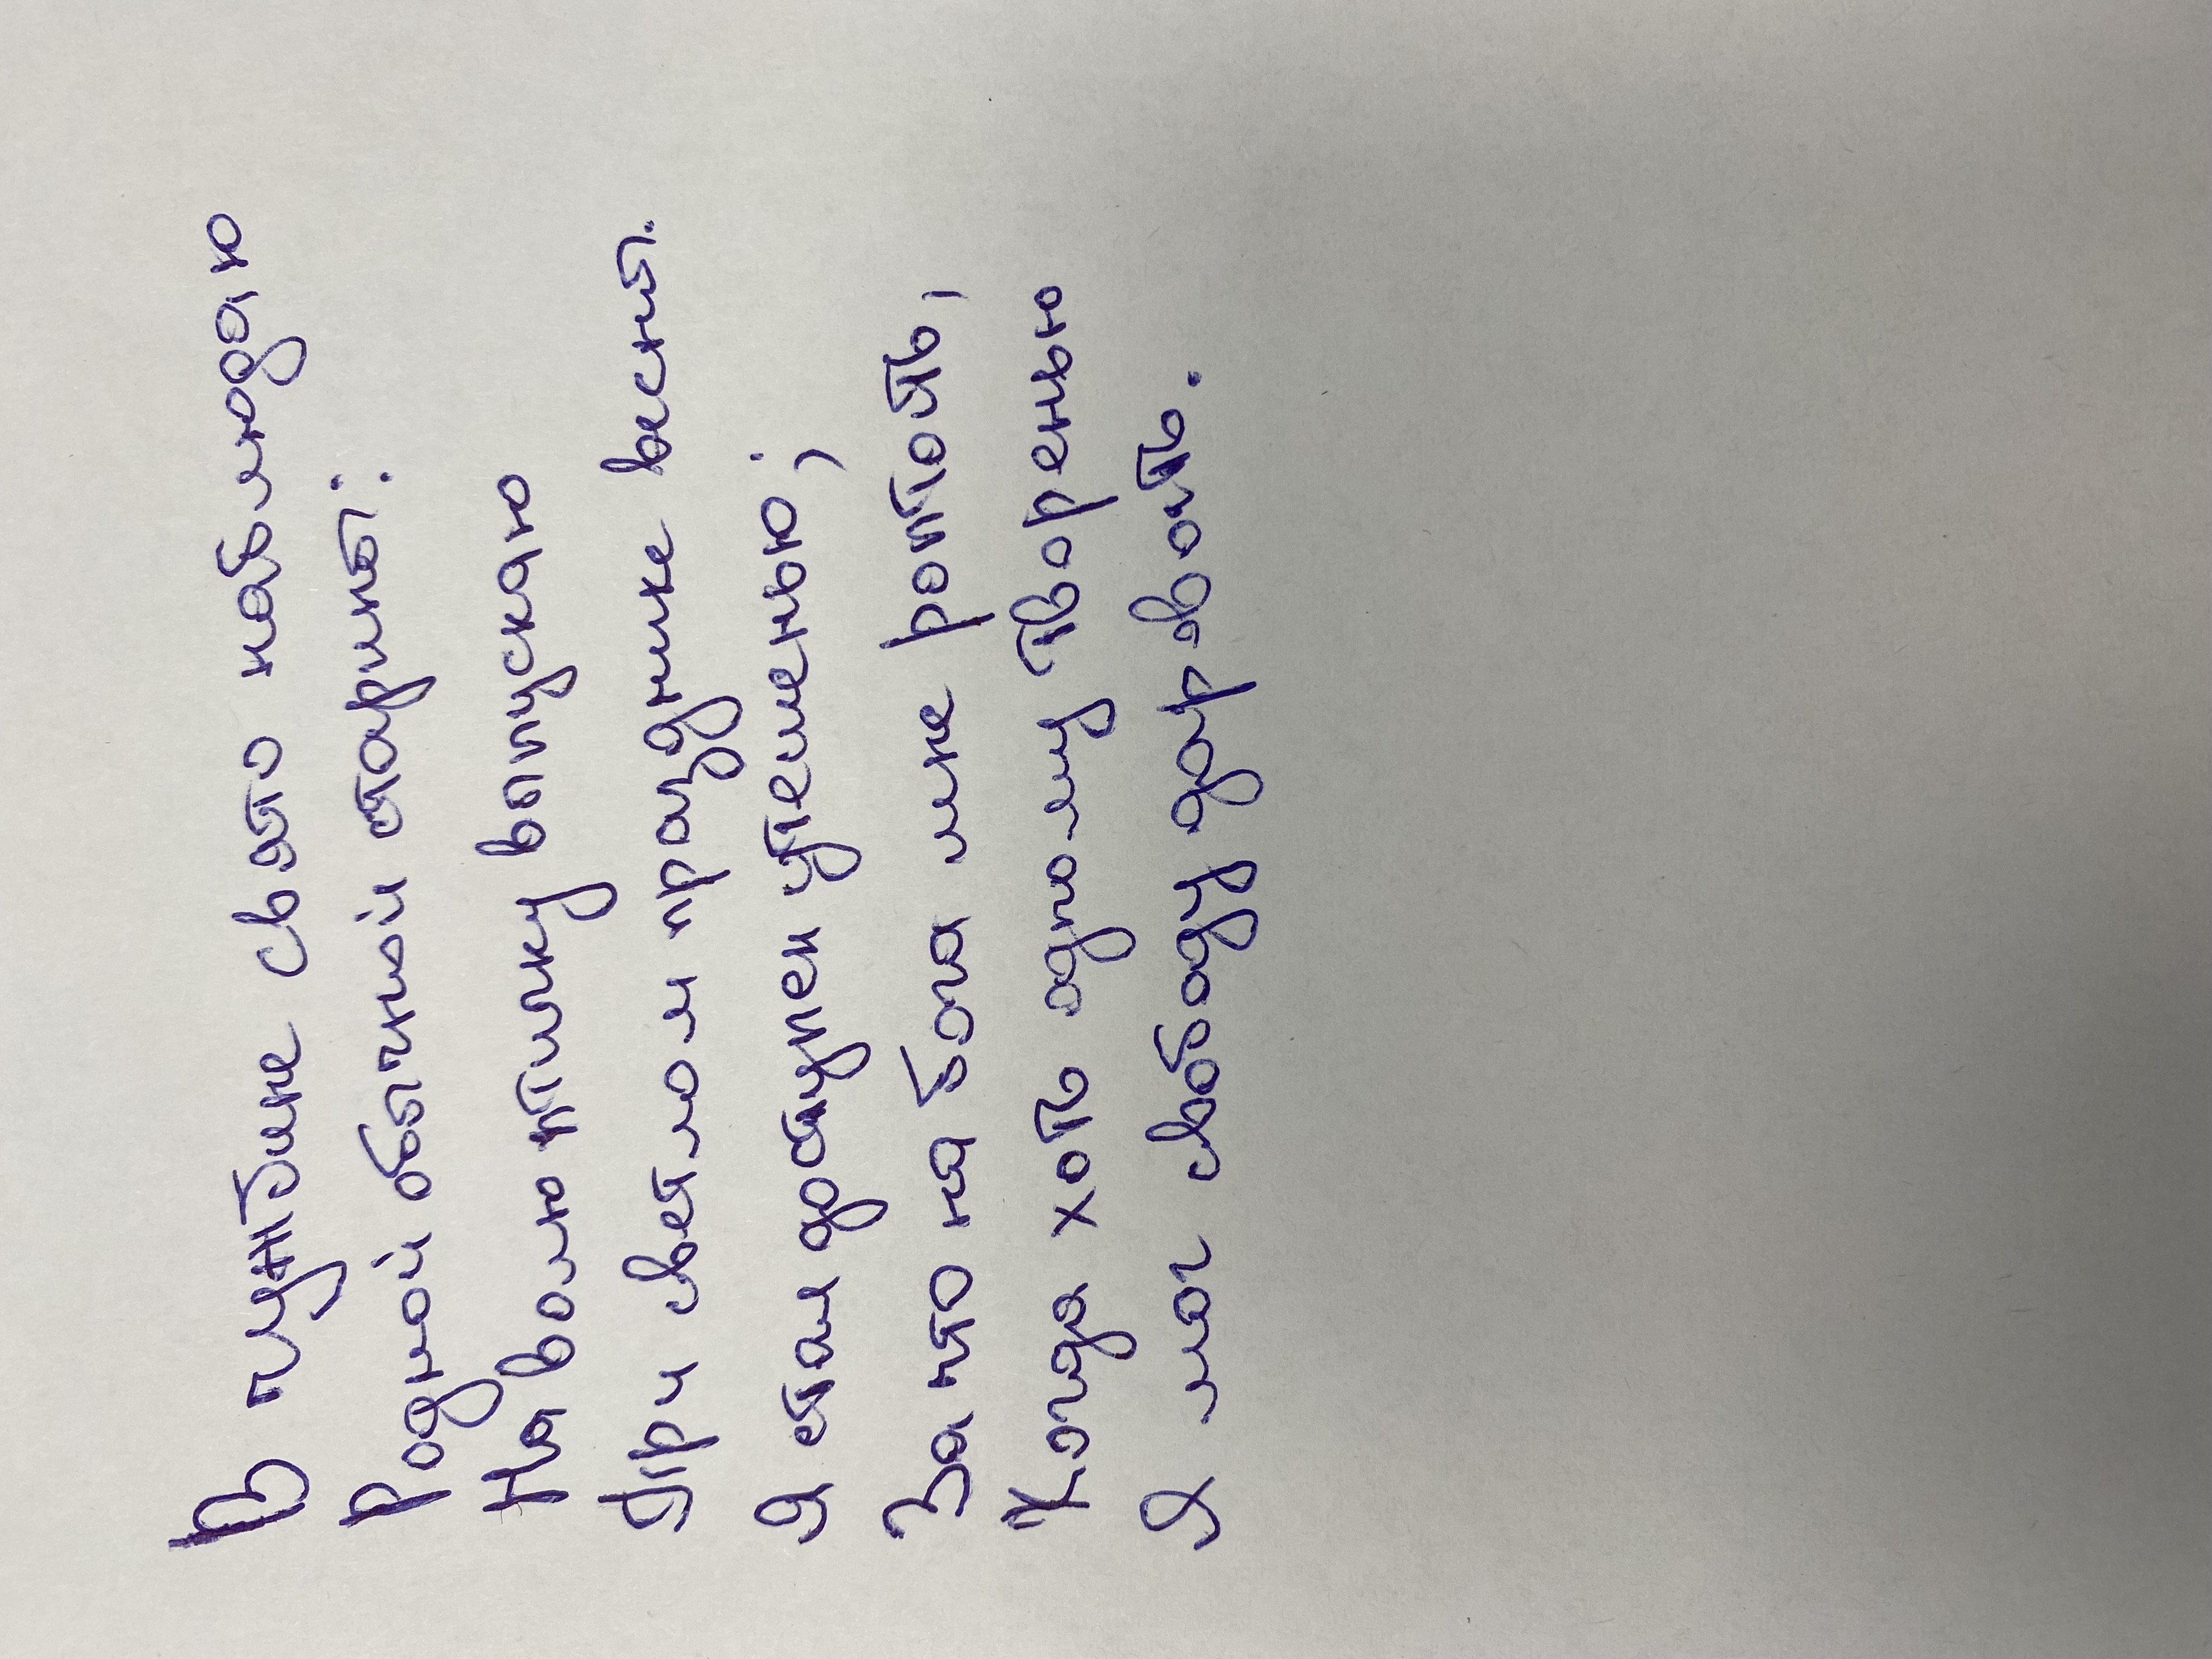 В чужбине свято наблюдаю
Родной обычай старины:
На волю птичку выпускаю
При светлом празднике весны.
Я стал доступен утешенью;
За что на бога мне роптать,
Когда хоть одному творенью
Я мог свободу даровать.